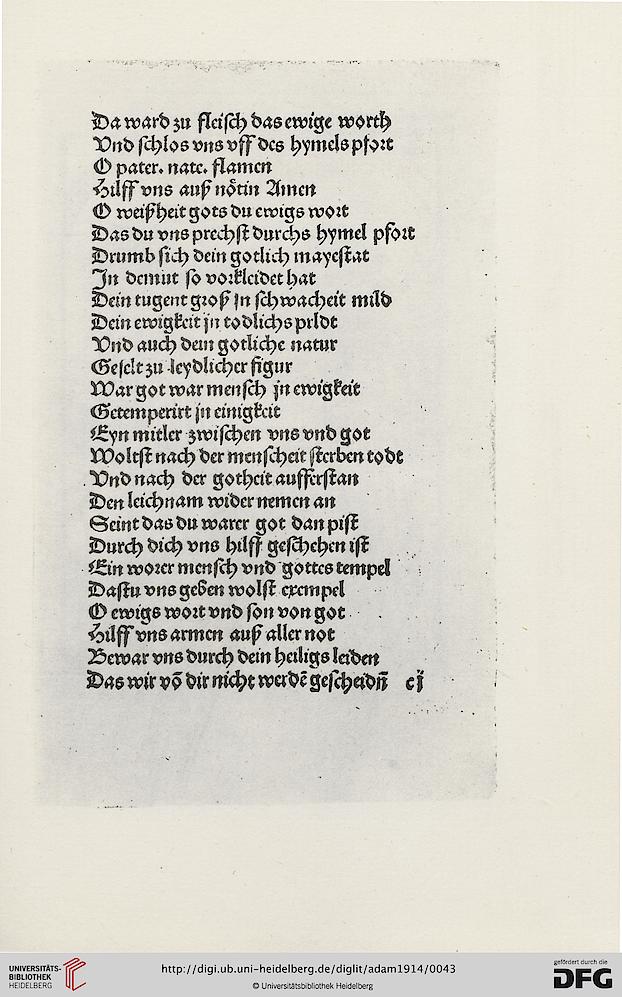 Da ward zu fleisch das ewige worth
Vnd schlos vns vff des hymels pfort
O pater. nate. flamen
Hilff vns auß nötin Amen
O weißheit gots du ewigs wort
Das du vns prechst durchs hymel pfort
Drumb sich dein gotlich mayestat
In demut so vorkleidet hat
Dein tugent groß jn schwacheit mild
Dein ewigkeit jn todlichs prldt
Vnd auch dein gotliche natur
Geselt zu leydlicher figur
War got war mensch jn ewigkeit
Getemperirt jn einigkeit
Eyn mitler zwischen vns vnd got
Woltst nach der menscheit sterben todt
Vnd nach der gotheit aufferstan
Den leichnam wider nemen an
Seint das du warer got dan pist
Durch dich vns hilff geschehen ist
Ein worer mensch vnd gottes tempel
Dastu vns geben wolst exempel
O ewigs wort vnd son von got
Hilff vns armen auß aller not
Bewar vns durch dein heiligs leiden
Das wir võ dir nicht werdē gescheidn̄ cij
UNIVERSITÄTS-
BIBLIOTHEK
HEIDELBERG
http://digi.ub.uni-heidelberg.de/diglit/adam1914/0043
© Universitätsbibliothek Heidelberg
gefördert durch die
DFG